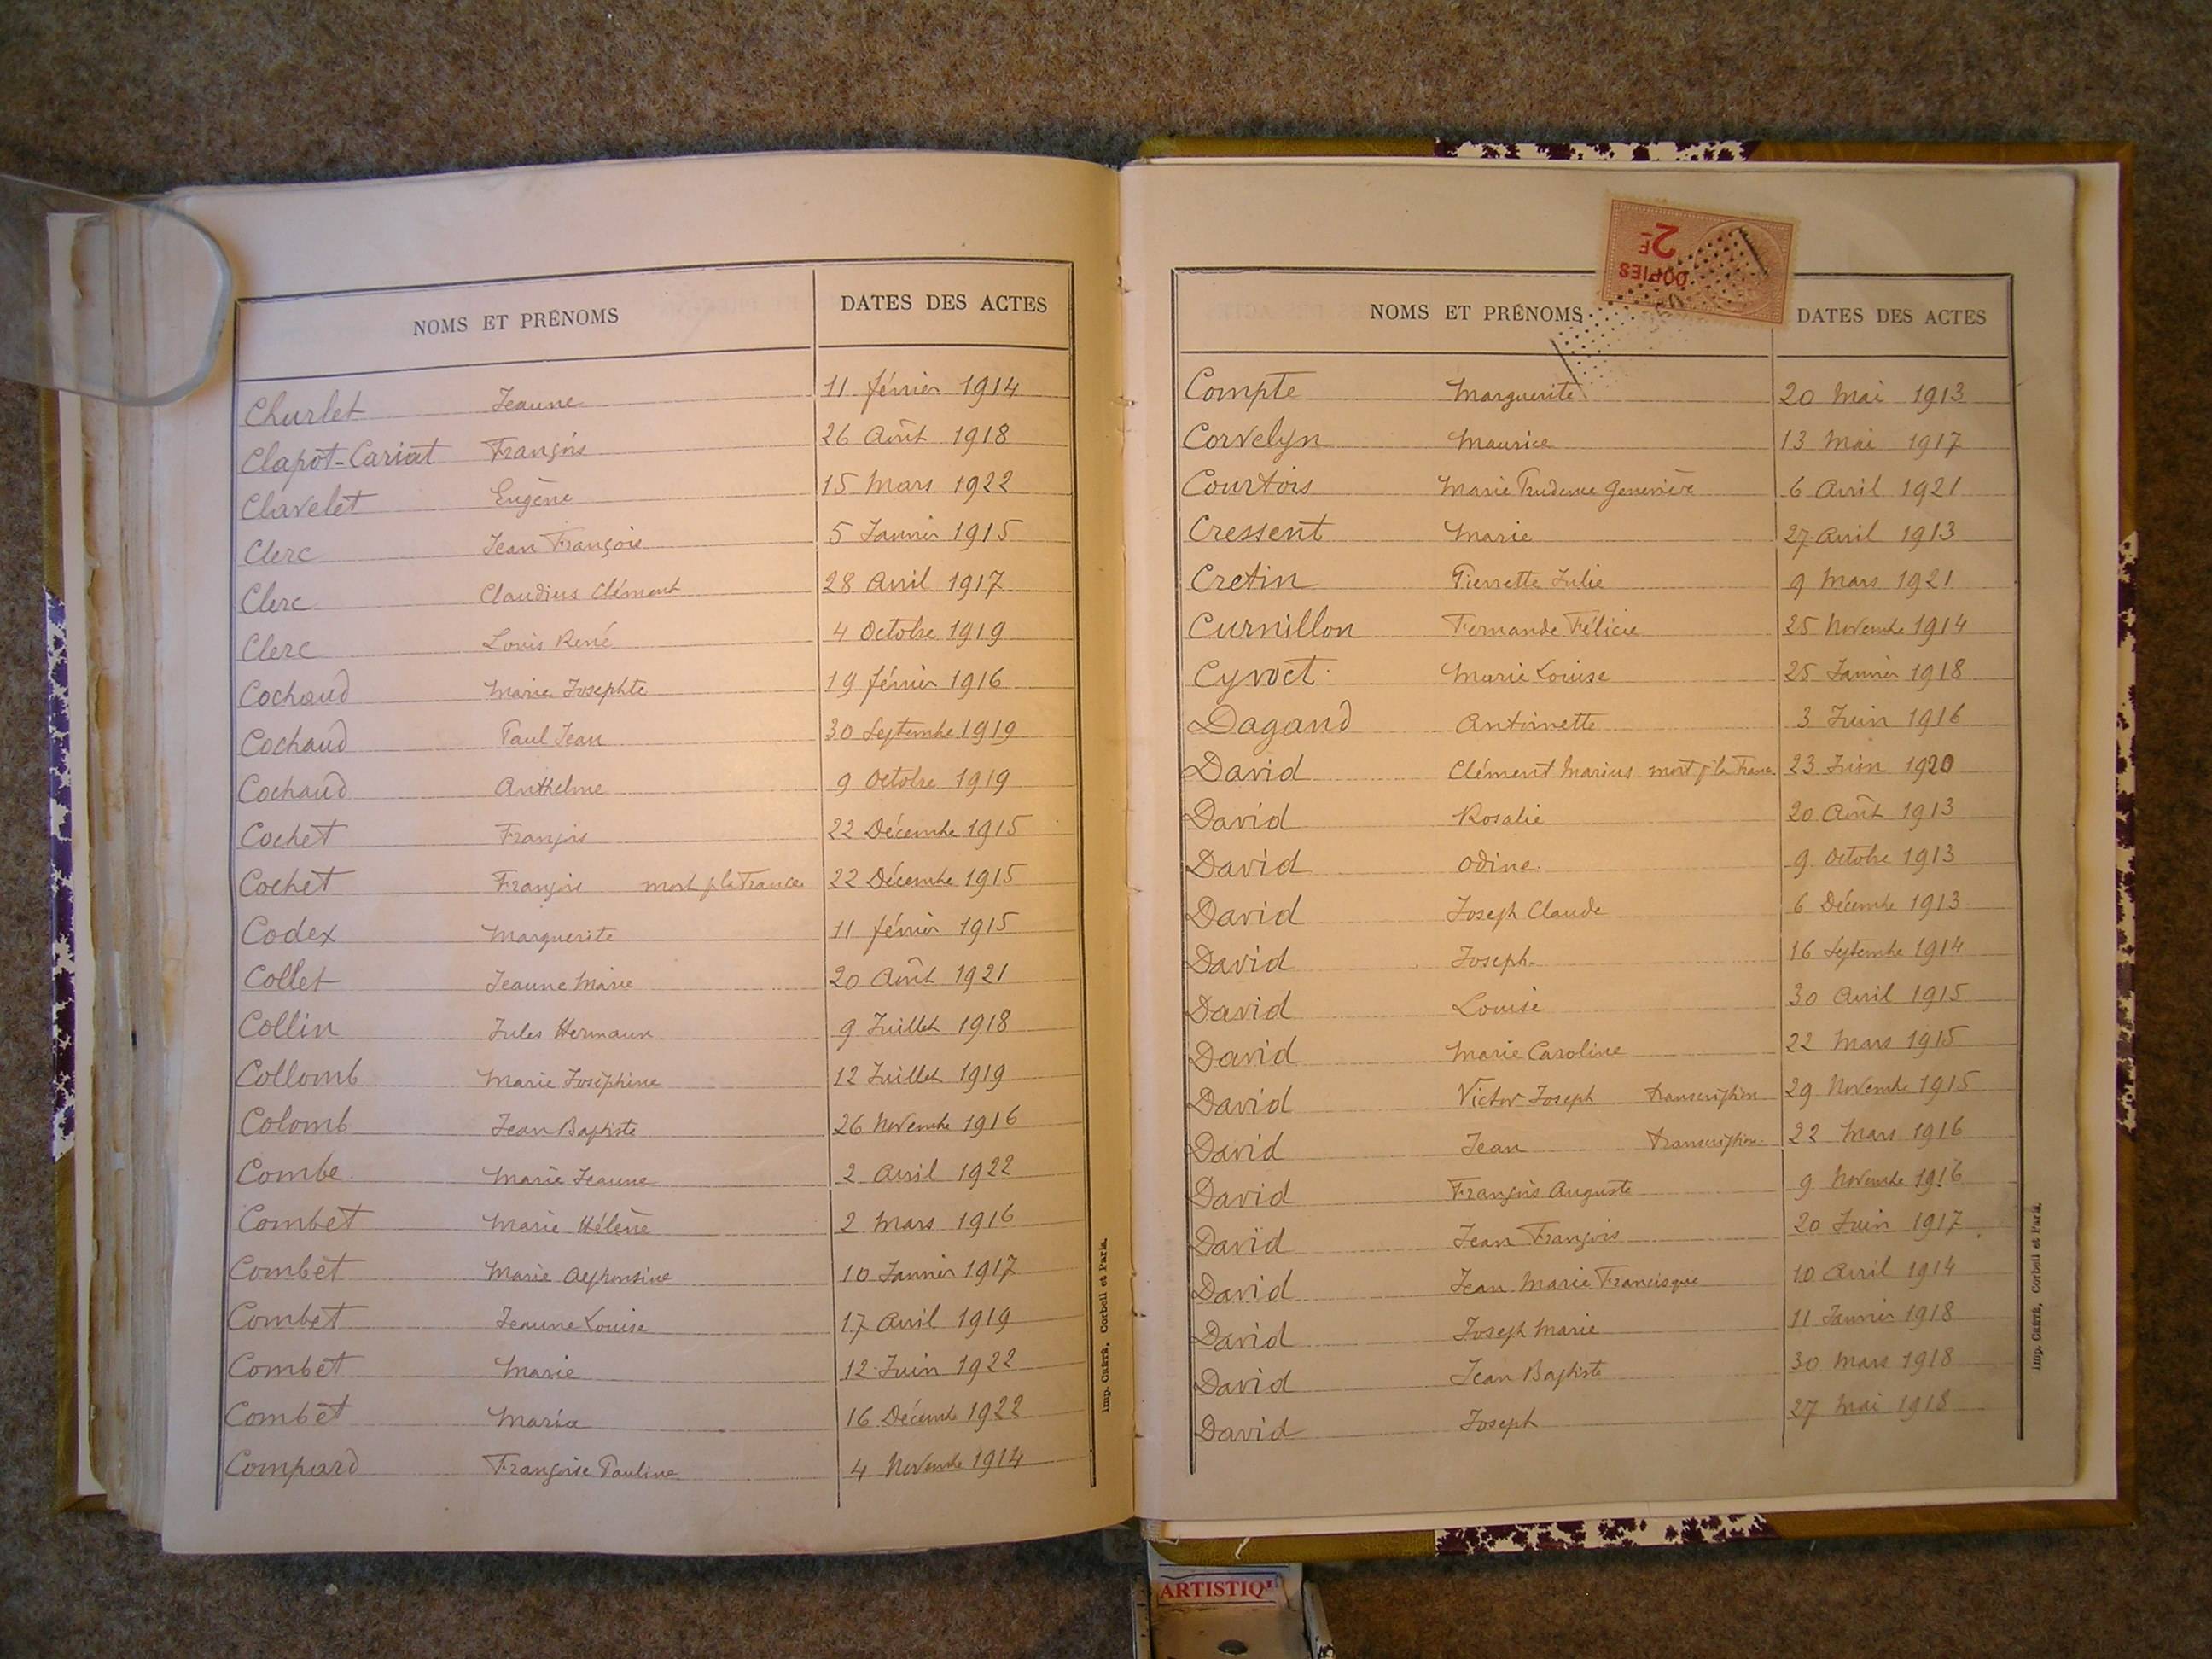 NOMS ET PRÉNOMS DATES DES ACTES
Churlet Jeanne 11 février 1914
Clapot-Cariat François 26 Août 1918
Clavelet Eugène 15 Mars 1922
Clerc Jean François 5 Janvier 1915
Clerc Claudius Clément 28 Avril 1917
Clerc Louis René 4 Octobre 1919
Cochaud Marie Josephte 19 février 1916
Cochaud Paul Jean 30 Septembre 1919
Cochaud Anthelme 9 Octobre 1919
Cochet François 22 Décembre 1915
Cochet François mort p. la France 22 Décembre 1915
Codex Marguerite 11 février 1915
Collet Jeanne Marie 20 Août 1921
Collin Jules Hermann 9 Juillet 1918
Collomb Marie Joséphine 12 Juillet 1919
Colomb Jean Baptiste 26 Novembre 1916
Combe Marie Jeanne 2 Avril 1922
Combet Marie Hélène 2 Mars 1916
Combet Marie Alphonsine 10 Janvier 1917
Combet Jeanne Louise 17 Avril 1919
Combet Marie 12 Juin 1922
Combet Maria 16 Décembre 1922
Compard Françoise Pauline 4 Novembre 1914
Imp. CRÉTÉ, Corbeil et Paris.
COPIES
2F
NOMS ET PRÉNOMS DATES DES ACTES
Compte Marguerite 20 Mai 1913
Corvelyn Maurice 13 Mai 1917
Courtois Marie Prudence Geneviève 6 Avril 1921
Cressent Marie 27 Avril 1913
Cretin Pierrette Julie 9 Mars 1921
Curnillon Fernande Félicie 25 Novembre 1914
Cyvoct Marie Louise 25 Janvier 1918
Dagand Antoinette 3 Juin 1916
David Clément Marius mort p. la France 23 Juin 1920
David Rosalie 20 Août 1913
David Odine 9 Octobre 1913
David Joseph Claude 6 Décembre 1913
David Joseph 16 Septembre 1914
David Louise 30 Avril 1915
David Marie Caroline 22 Mars 1915
David Victor Joseph transcription 29 Novembre 1915
David Jean transcription 22 Mars 1916
David François Auguste 9 Novembre 1916
David Jean François 20 Juin 1917
David Jean Marie Francisque 10 Avril 1914
David Joseph Marie 11 Janvier 1918
David Jean Baptiste 30 Mars 1918
David Joseph 27 Mai 1918
Imp. CRÉTÉ, Corbeil et Paris.
ARTISTIQ